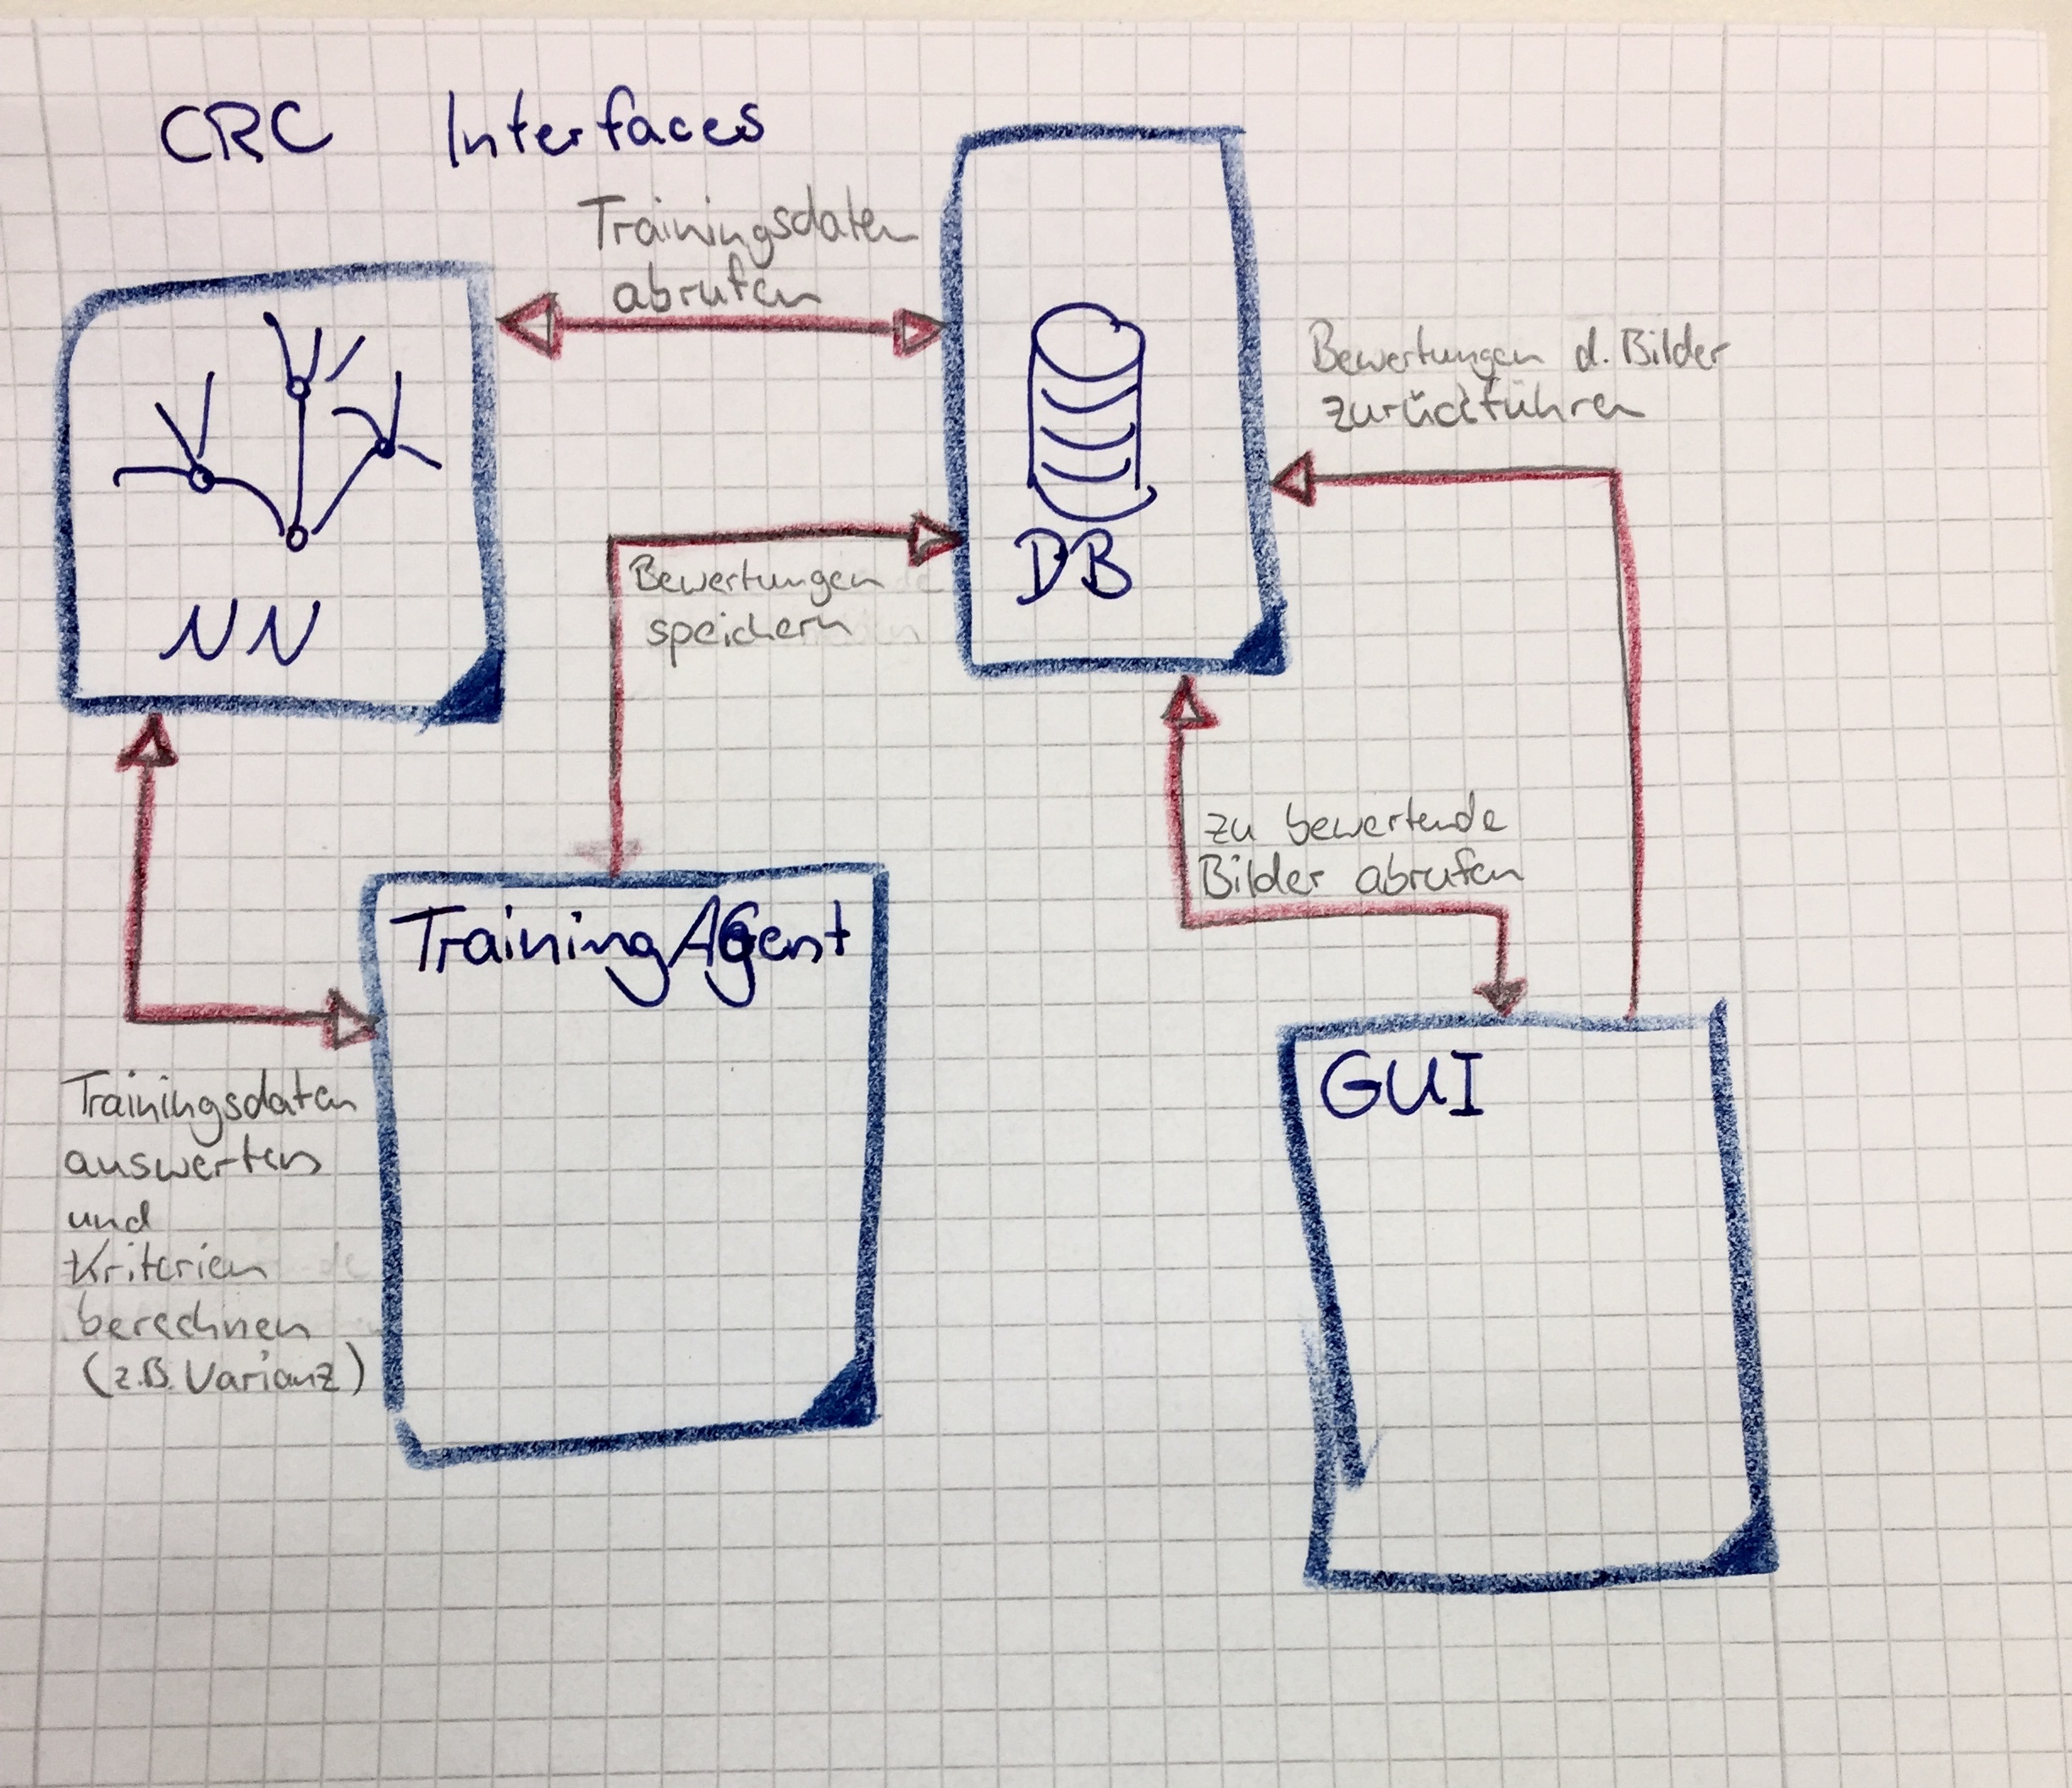 CRC Interfaces
Trainingsdaten
abrufen
Bewertungen d. Bilder
zurückführen
Bewertungen
speichern
DB
NN
zu bewertende
Bilder abrufen
TrainingAGent
GUI
Trainingsdaten
auswerten
und
Kriterien
berechnen
(z.B. Varianz)